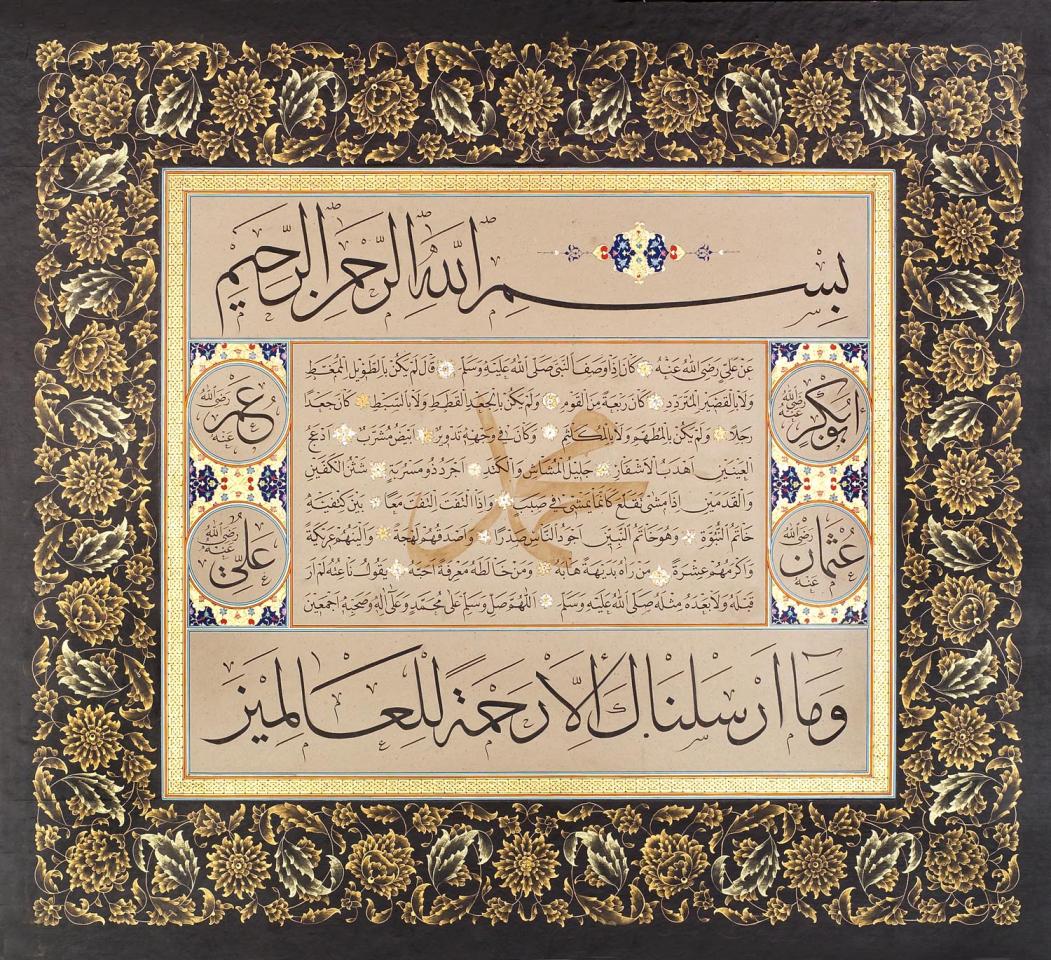 بِسْمِ اللّٰهِ الرَّحْمٰنِ الرَّحِيمِ
أَبُو بَكْرٍ رَضِيَ اللّٰهُ عَنْهُ
عُمَرُ رَضِيَ اللّٰهُ عَنْهُ
عَنْ عَلِيٍّ رَضِيَ اللّٰهُ عَنْهُ كَانَ إِذَا وَصَفَ النَّبِيَّ صَلَّى اللّٰهُ عَلَيْهِ وَسَلَّمَ قَالَ لَمْ يَكُنْ بِالطَّوِيلِ الْمُمَّغِطِ
وَلَا بِالْقَصِيرِ الْمُتَرَدِّدِ كَانَ رَبْعَةً مِنَ الْقَوْمِ وَلَمْ يَكُنْ بِالْجَعْدِ الْقَطَطِ وَلَا بِالسَّبِطِ كَانَ جَعْدًا
رَجِلًا وَلَمْ يَكُنْ بِالْمُطَهَّمِ وَلَا بِالْمُكَلْثَمِ وَكَانَ فِي وَجْهِهِ تَدْوِيرٌ أَبْيَضُ مُشْرَبٌ أَدْعَجُ
الْعَيْنَيْنِ أَهْدَبُ الْأَشْفَارِ جَلِيلُ الْمُشَاشِ وَالْكَتَدِ أَجْرَدُ ذُو مَسْرُبَةٍ شَثْنُ الْكَفَّيْنِ
وَالْقَدَمَيْنِ إِذَا مَشَى تَقَلَّعَ كَأَنَّمَا يَمْشِي فِي صَبَبٍ وَإِذَا الْتَفَتَ الْتَفَتَ مَعًا بَيْنَ كَتِفَيْهِ
خَاتَمُ النُّبُوَّةِ وَهُوَ خَاتَمُ النَّبِيِّينَ أَجْوَدُ النَّاسِ صَدْرًا وَأَصْدَقُهُمْ لَهْجَةً وَأَلْيَنُهُمْ عَرِيكَةً
وَأَكْرَمُهُمْ عِشْرَةً مَنْ رَآهُ بَدِيهَةً هَابَهُ وَمَنْ خَالَطَهُ مَعْرِفَةً أَحَبَّهُ يَقُولُ نَاعِتُهُ لَمْ أَرَ
قَبْلَهُ وَلَا بَعْدَهُ مِثْلَهُ صَلَّى اللّٰهُ عَلَيْهِ وَسَلَّمَ اللّٰهُمَّ صَلِّ وَسَلِّمْ عَلَى مُحَمَّدٍ وَعَلَى آلِهِ وَصَحْبِهِ أَجْمَعِينَ
محمد
عُثْمَانُ رَضِيَ اللّٰهُ عَنْهُ
عَلِيٌّ رَضِيَ اللّٰهُ عَنْهُ
وَمَا أَرْسَلْنَاكَ إِلَّا رَحْمَةً لِلْعَالَمِينَ